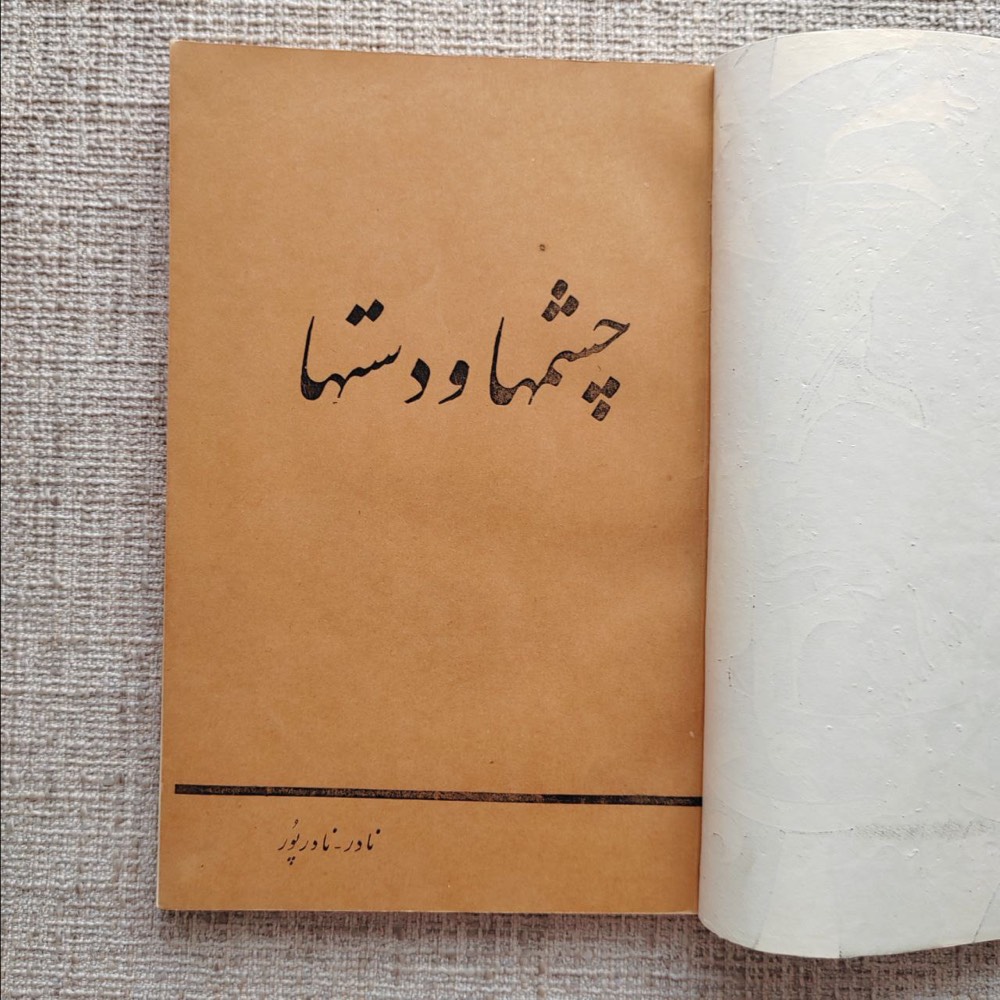 چشمها و دستها
نادر - نادرپُور